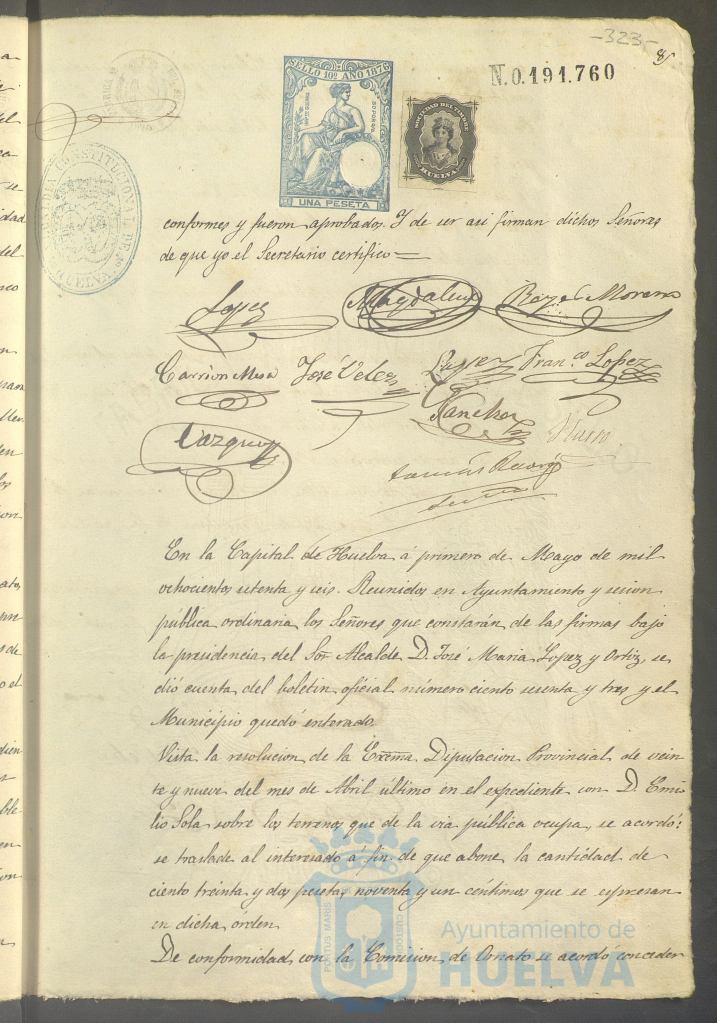 -323-
N.0.191.760
SELLO 10º AÑO 1876
UNA PESETA
SOCIEDAD DEL TIMBRE
HUELVA
conformes y fueron aprobados. Y de ser asi firman dichos Señores
de que yo el Secretario certifico=
Lopez Magdalena Raz de Moreno
Carrion Mesa José Velez Lopez Franco Lopez
Sanchez
Vazquez
En la Capital de Huelva á primero de Mayo de mil
ochocientos setenta y seis. Reunidos en Ayuntamiento y sesion
pública ordinaria los Señores que constarán de las firmas bajo
la presidencia del Sor Alcalde D. José Maria Lopez y Ortiz, se
dió cuenta del boletin oficial número ciento sesenta y tres y el
Municipio quedó enterado.
Vista la resolucion de la Excma. Diputacion Provincial de vein
te y nueve del mes de Abril último en el expediente con D. Emi
lio Sola sobre los terrenos que de la via pública ocupa, se acordó:
se traslade al interesado á fin de que abone la cantidad de
ciento treinta y dos pesetas, noventa y un céntimos que se espresan
en dicha órden.
De conformidad con la Comision de Ornato se acordó conceder
PORTUS MARIS CUSTODIA
Ayuntamiento de
HUELVA